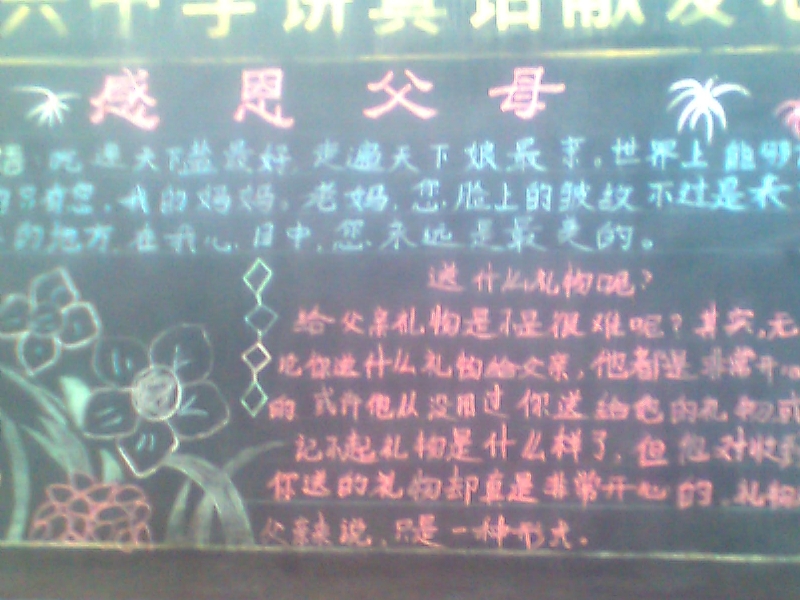 六中学讲真话献爱心
感恩父母
吃遍天下盐最好,走遍天下娘最亲。世界上能够
的只有您,我的妈妈。老妈,您脸上的皱纹不过是
的地方,在我心目中,您永远是最美的。
送什么礼物呢?
给父亲礼物是不是很难呢?其实,无
论你送什么礼物给父亲,他都是非常开心
的,或许他从没用过你送给他的礼物,或
记不起礼物是什么样了,但他对收到
你送的礼物却真是非常开心的,礼物
父亲来说,只是一种形式。